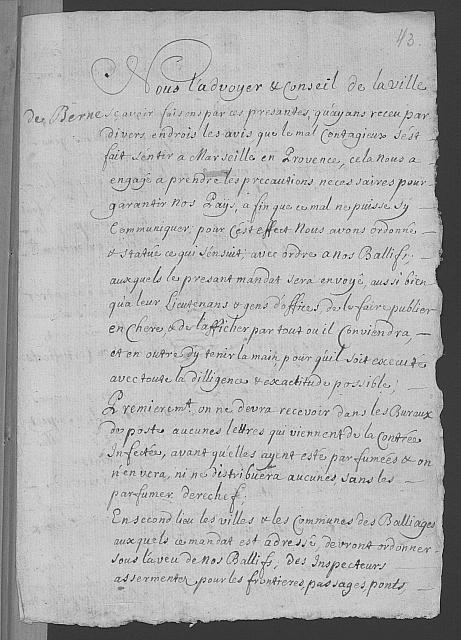 43.
Nous l'advoyer & Conseil de la ville
de Berne sçavoir faisons par ces presantes, qu'ayans receu par
divers endrois les avis que le mal Contagieux s'est
fait sentir a Marseille en Provence, cela Nous a
engagé a prendre les precautions necessaires pour
garantir Nos Pays, a fin que ce mal ne puisse s'y
Communiquer, pour C'est effect Nous avons ordonné
& statué ce qui s'ensuit; avec ordre a nos Ballifs,
auxquels le presant mandat sera envoyé, aussi bien
qu'a leur Lieutenans & gens d'offices, de le faire publier
en Chere & de l'afficher par tout ou il Conviendra,
et en outre d'y tenir la main, pour qu'il soit executé
avec toute la dilligence & exactitude possible;
Premieremt. on ne devra recevoir dans les Buraux
du poste aucunes lettres qui viennent de la Contrée
Infectée, avant qu'elles ayent esté parfumées & on
n'en vera, ni ne distribuera aucunes sans les
parfumer derechef;
En second lieu les villes & les Communes des Balliages
auxquels ce mandat est adressé, devront ordonner
sous l'aveu de nos Ballifs, des Inspecteurs
assermentez pour les frontieres passages ponts